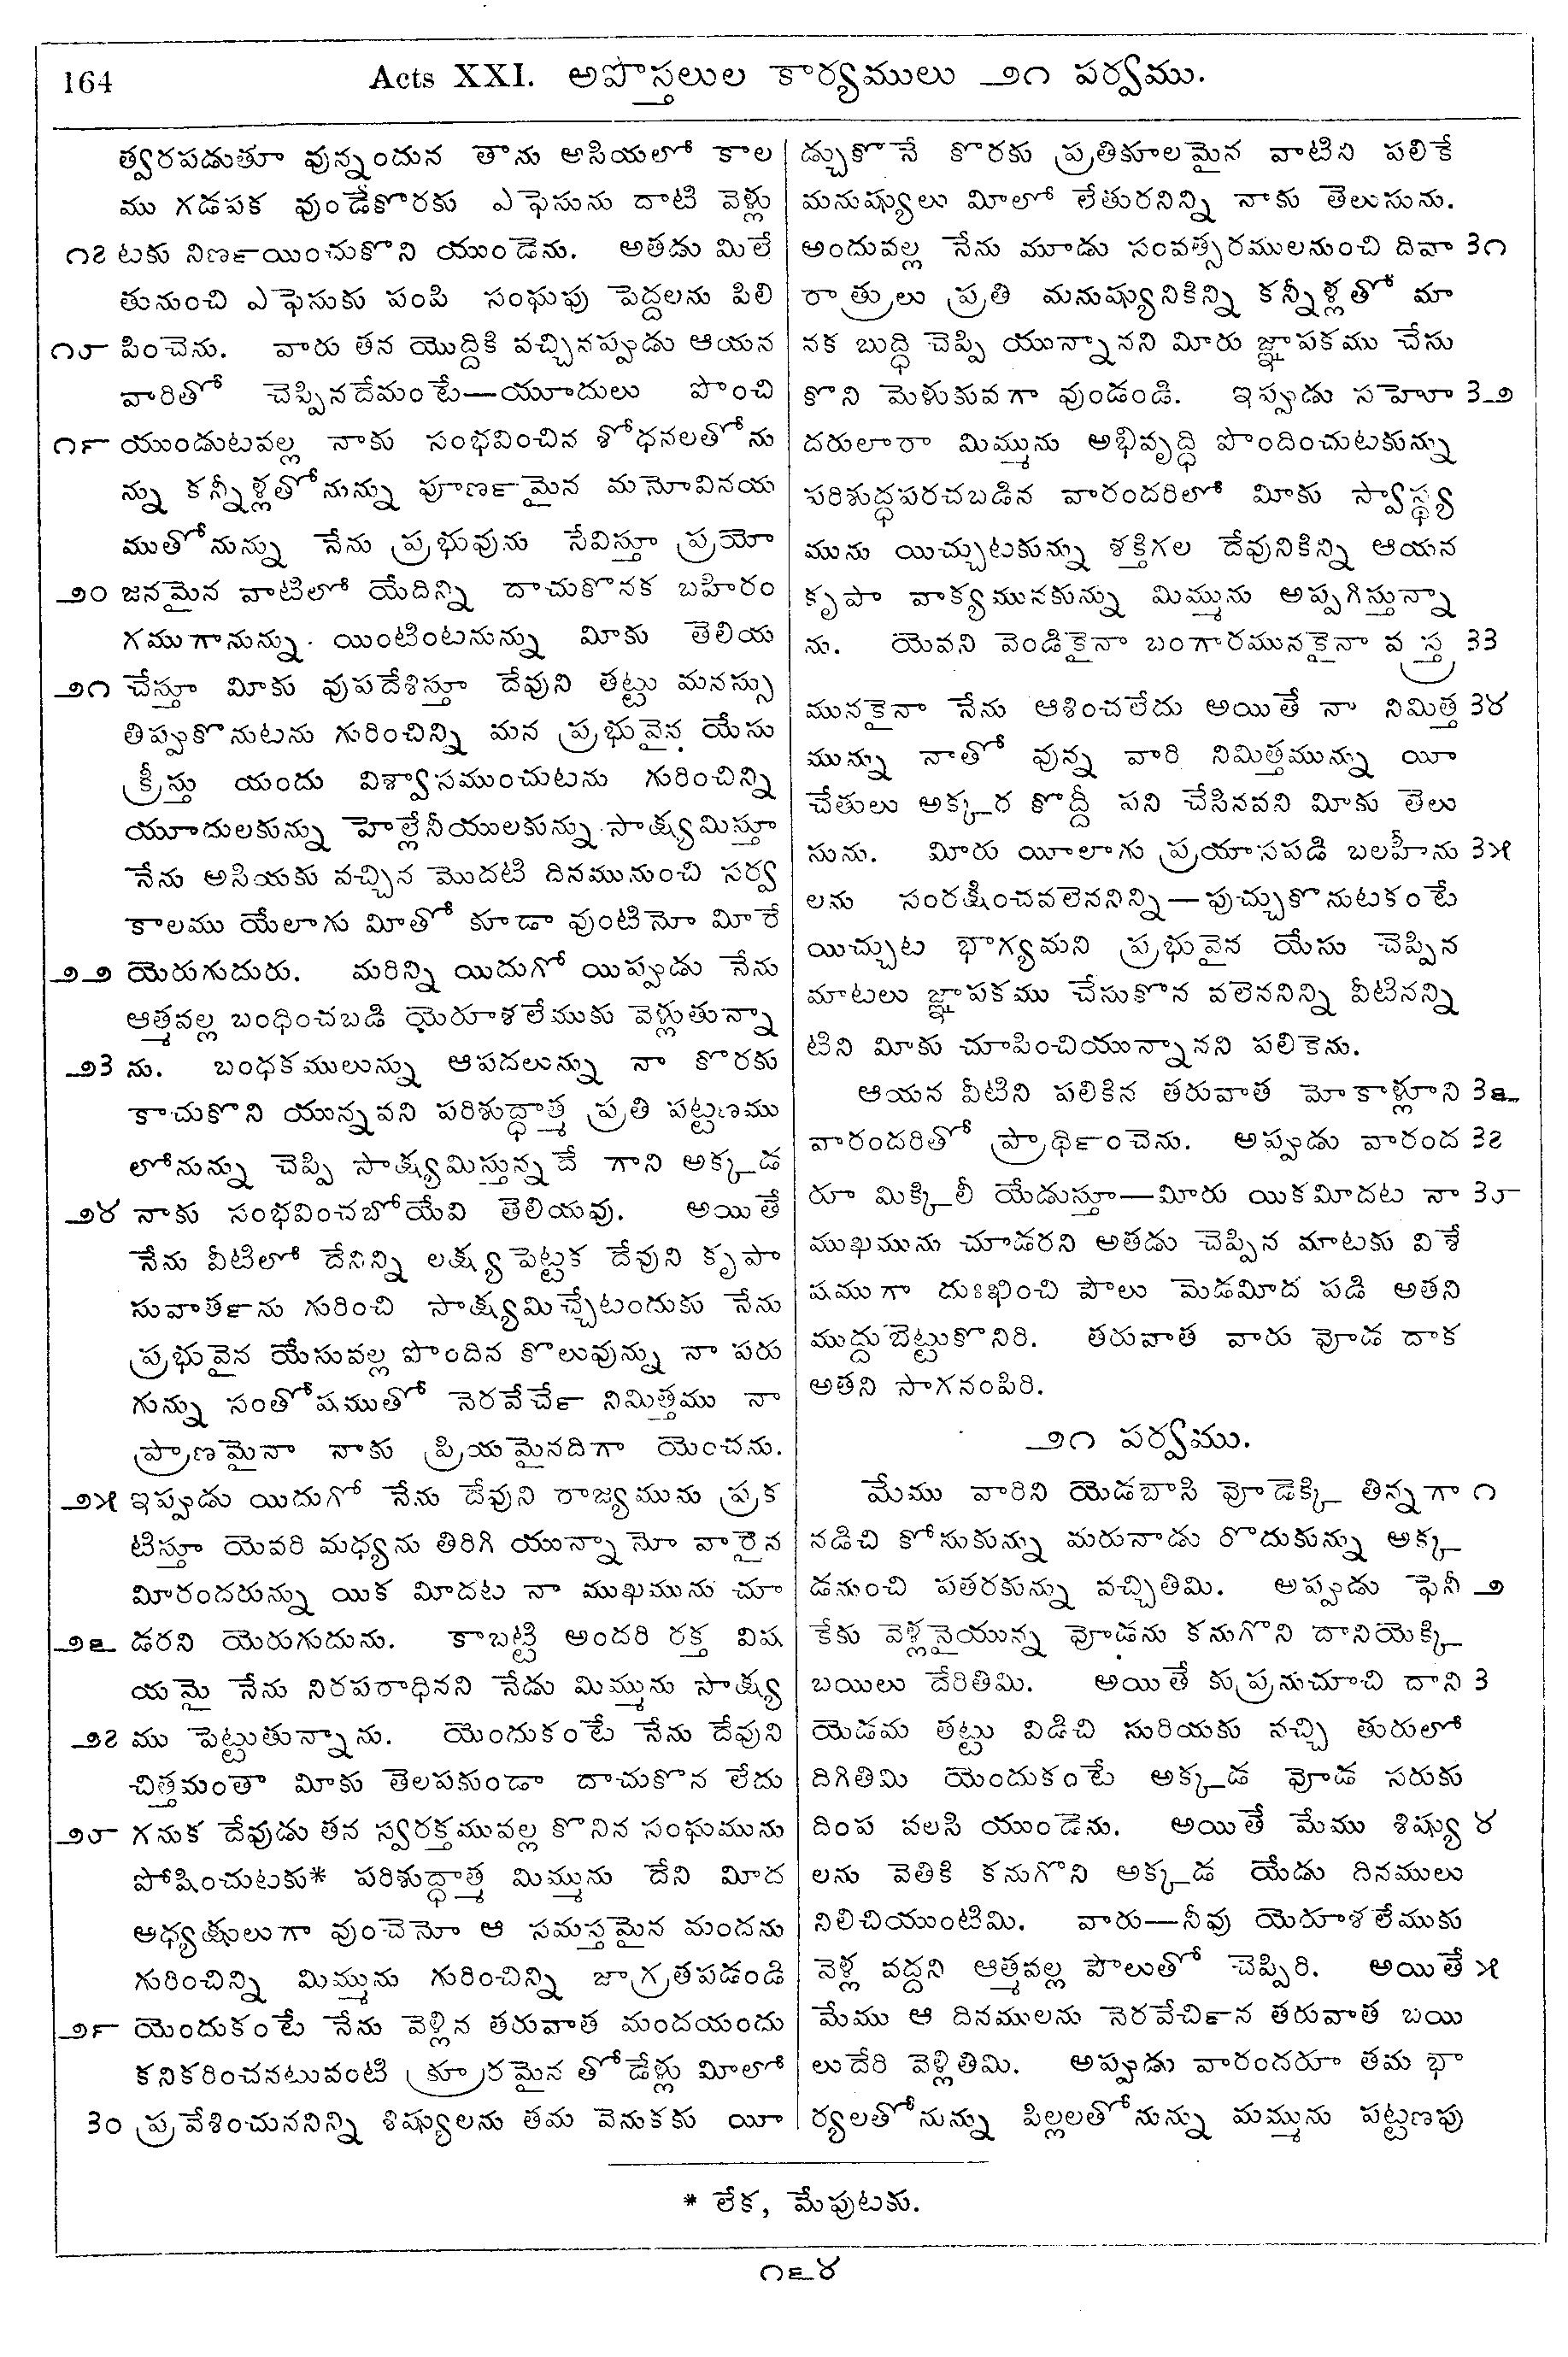 164 Acts XXI. అపొస్తలుల కార్యములు ౨౧ పర్వము.
త్వరపడుతూ వున్నందున తాను ఆసియలో కాల
ము గడపక వుండేకొరకు ఎఫెసును దాటి వెళ్లు
౧౭ టకు నిణ౯యించుకొని యుండెను. అతడు మిలే
తునుంచి ఎఫెసుకు పంపి సంఘపు పెద్దలను పిలి
౧౮ పించెను. వారు తన యొద్దికి వచ్చినప్పుడు ఆయన
వారితో చెప్పినదేమంటే—యూదులు పొంచి
౧౯ యుండుటవల్ల నాకు సంభవించిన శోధనలతోను
న్ను కన్నీళ్లతోనున్ను పూణ౯మైన మనోవినయ
ముతోనున్ను నేను ప్రభువును సేవిస్తూ ప్రయో
౨౦ జనమైన వాటిలో యేదిన్ని దాచుకొనక బహిరం
గముగానున్ను యింటింటనున్ను మీకు తెలియ
౨౧ చేస్తూ మీకు వుపదేశిస్తూ దేవుని తట్టు మనస్సు
తిప్పుకొనుటను గురించిన్ని మన ప్రభువైన యేసు
క్రీస్తు యందు విశ్వాసముంచుటను గురించిన్ని
యూదులకున్ను హెల్లేనీయులకున్ను సాక్ష్యమిస్తూ
నేను అసియకు వచ్చిన మొదటి దినమునుంచి సర్వ
కాలము యేలాగు మీతో కూడా వుంటినో మీరే
౨౨ యెరుగుదురు. మరిన్ని యిదుగో యిప్పుడు నేను
ఆత్మవల్ల బంధించబడి యెరూశలేముకు వెళ్లుతున్నా
౨౩ ను. బంధకములున్ను ఆపదలున్ను నా కొరకు
కాచుకొని యున్నవని పరిశుద్ధాత్మ ప్రతి పట్టణము
లోనున్ను చెప్పి సాక్ష్యమిస్తున్నదే గాని అక్కడ
౨౪ నాకు సంభవించబోయేవి తెలియవు. అయితే
నేను వీటిలో దేనిన్ని లక్ష్యపెట్టక దేవుని కృపా
సువాత౯ను గురించి సాక్ష్యమిచ్చేటందుకు నేను
ప్రభువైన యేసువల్ల పొందిన కొలువున్ను నా పరు
గున్ను సంతోషముతో నెరవేచే౯ నిమిత్తము నా
ప్రాణమైనా నాకు ప్రియమైనదిగా యెంచను.
౨౫ ఇప్పుడు యిదుగో నేను దేవుని రాజ్యమును ప్రక
టిస్తూ యెవరి మధ్యను తిరిగి యున్నానో వారైన
మీరందరున్ను యిక మీదట నా ముఖమును చూ
౨౬ డరని యెరుగుదును. కాబట్టి అందరి రక్త విష
యమై నేను నిరపరాధినని నేడు మిమ్మును సాక్ష్య
౨౭ ము పెట్టుతున్నాను. యెందుకంటే నేను దేవుని
చిత్తమంతా మీకు తెలపకుండా దాచుకొన లేదు
౨౮ గనుక దేవుడు తన స్వరక్తమువల్ల కొనిన సంఘమును
పోషించుటకు* పరిశుద్ధాత్మ మిమ్మును దేని మీద
అధ్యక్షులుగా వుంచెనో ఆ సమస్తమైన మందను
గురించిన్ని మిమ్మును గురించిన్ని జాగ్రతపడండి
౨౯ యెందుకంటే నేను వెళ్లిన తరువాత మందయందు
కనికరించనటువంటి క్రూరమైన తోడేళ్లు మీలో
౩౦ ప్రవేశించుననిన్ని శిష్యులను తమ వెనుకకు యీ
డ్చుకొనే కొరకు ప్రతికూలమైన వాటిని పలికే
మనుష్యులు మీలో లేతురనిన్ని నాకు తెలుసును.
అందువల్ల నేను మూడు సంవత్సరములనుంచి దివా ౩౧
రాత్రులు ప్రతి మనుష్యునికిన్ని కన్నీళ్లతో మా
నక బుద్ధి చెప్పి యున్నానని మీరు జ్ఞాపకము చేసు
కొని మెళుకువగా వుండండి. ఇప్పుడు సహో ౩౨
దరులారా మిమ్మును అభివృద్ధి పొందించుటకున్ను
పరిశుద్ధపరచబడిన వారందరిలో మీకు స్వాస్థ్య
మును యిచ్చుటకున్ను శక్తిగల దేవునికిన్ని ఆయన
కృపా వాక్యమునకున్ను మిమ్మును అప్పగిస్తున్నా
ను. యెవని వెండికైనా బంగారమునకైనా వస్త్ర ౩౩
మునకైనా నేను ఆశించలేదు అయితే నా నిమిత్త ౩౪
మున్ను నాతో వున్న వారి నిమిత్తమున్ను యీ
చేతులు అక్కర కొద్దీ పని చేసినవని మీకు తెలు
సును. మీరు యీలాగు ప్రయాసపడి బలహీను ౩౫
లను సంరక్షించవలెననిన్ని—పుచ్చుకొనుటకంటే
యిచ్చుట భాగ్యమని ప్రభువైన యేసు చెప్పిన
మాటలు జ్ఞాపకము చేసుకొన వలెననిన్ని వీటినన్ని
టిని మీకు చూపించియున్నానని పలికెను.
ఆయన వీటిని పలికిన తరువాత మోకాళ్లూని ౩౬
వారందరితో ప్రాథి౯ంచెను. అప్పుడు వారంద ౩౭
రూ మిక్కిలీ యేడుస్తూ—మీరు యికమీదట నా ౩౮
ముఖమును చూడరని అతడు చెప్పిన మాటకు విశే
షముగా దుఃఖించి పౌలు మెడమీద పడి అతని
ముద్దుబెట్టుకొనిరి. తరువాత వారు వోడ దాక
అతని సాగనంపిరి.
౨౧ పర్వము.
మేము వారిని యెడబాసి వోడెక్కి తిన్నగా ౧
నడిచి కోసుకున్ను మరునాడు రొదుకున్ను అక్క
డనుంచి పతరకున్ను వచ్చితిమి. అప్పుడు ఫెనీ ౨
కేకు వెళ్లనైయున్న వోడను కనుగొని దానియెక్కి
బయిలు దేరితిమి. అయితే కుప్రనుచూచి దాని ౩
యెడమ తట్టు విడిచి సురియకు వచ్చి తురులో
దిగితిమి యెందుకంటే అక్కడ వోడ సరుకు
దింప వలసి యుండెను. అయితే మేము శిష్యు ౪
లను వెతికి కనుగొని అక్కడ యేడు దినములు
నిలిచియుంటిమి. వారు—నీవు యెరూశలేముకు
వెళ్ల వద్దని ఆత్మవల్ల పౌలుతో చెప్పిరి. అయితే ౫
మేము ఆ దినములను నెరవేచి౯న తరువాత బయి
లుదేరి వెళ్లితిమి. అప్పుడు వారందరూ తమ భా
ర్యలతోనున్ను పిల్లలతోనున్ను మమ్మును పట్టణపు
* లేక, మేపుటకు.
౧౬౪